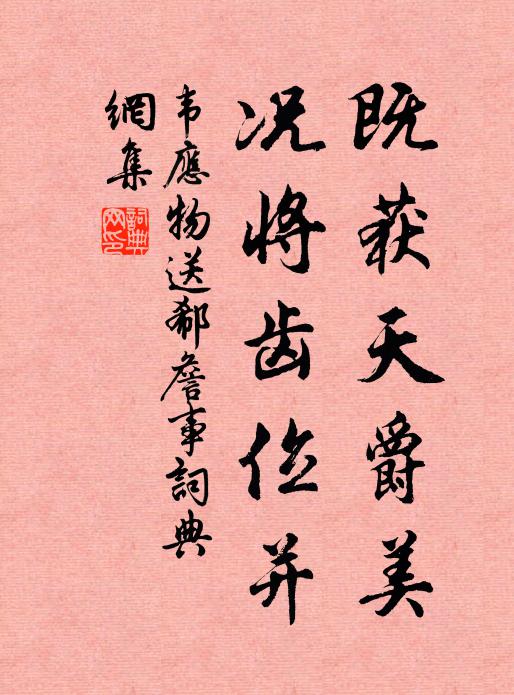 既获天爵美
况将齿位并
韦應物送郗詹事詞典
網集
詞典
网印